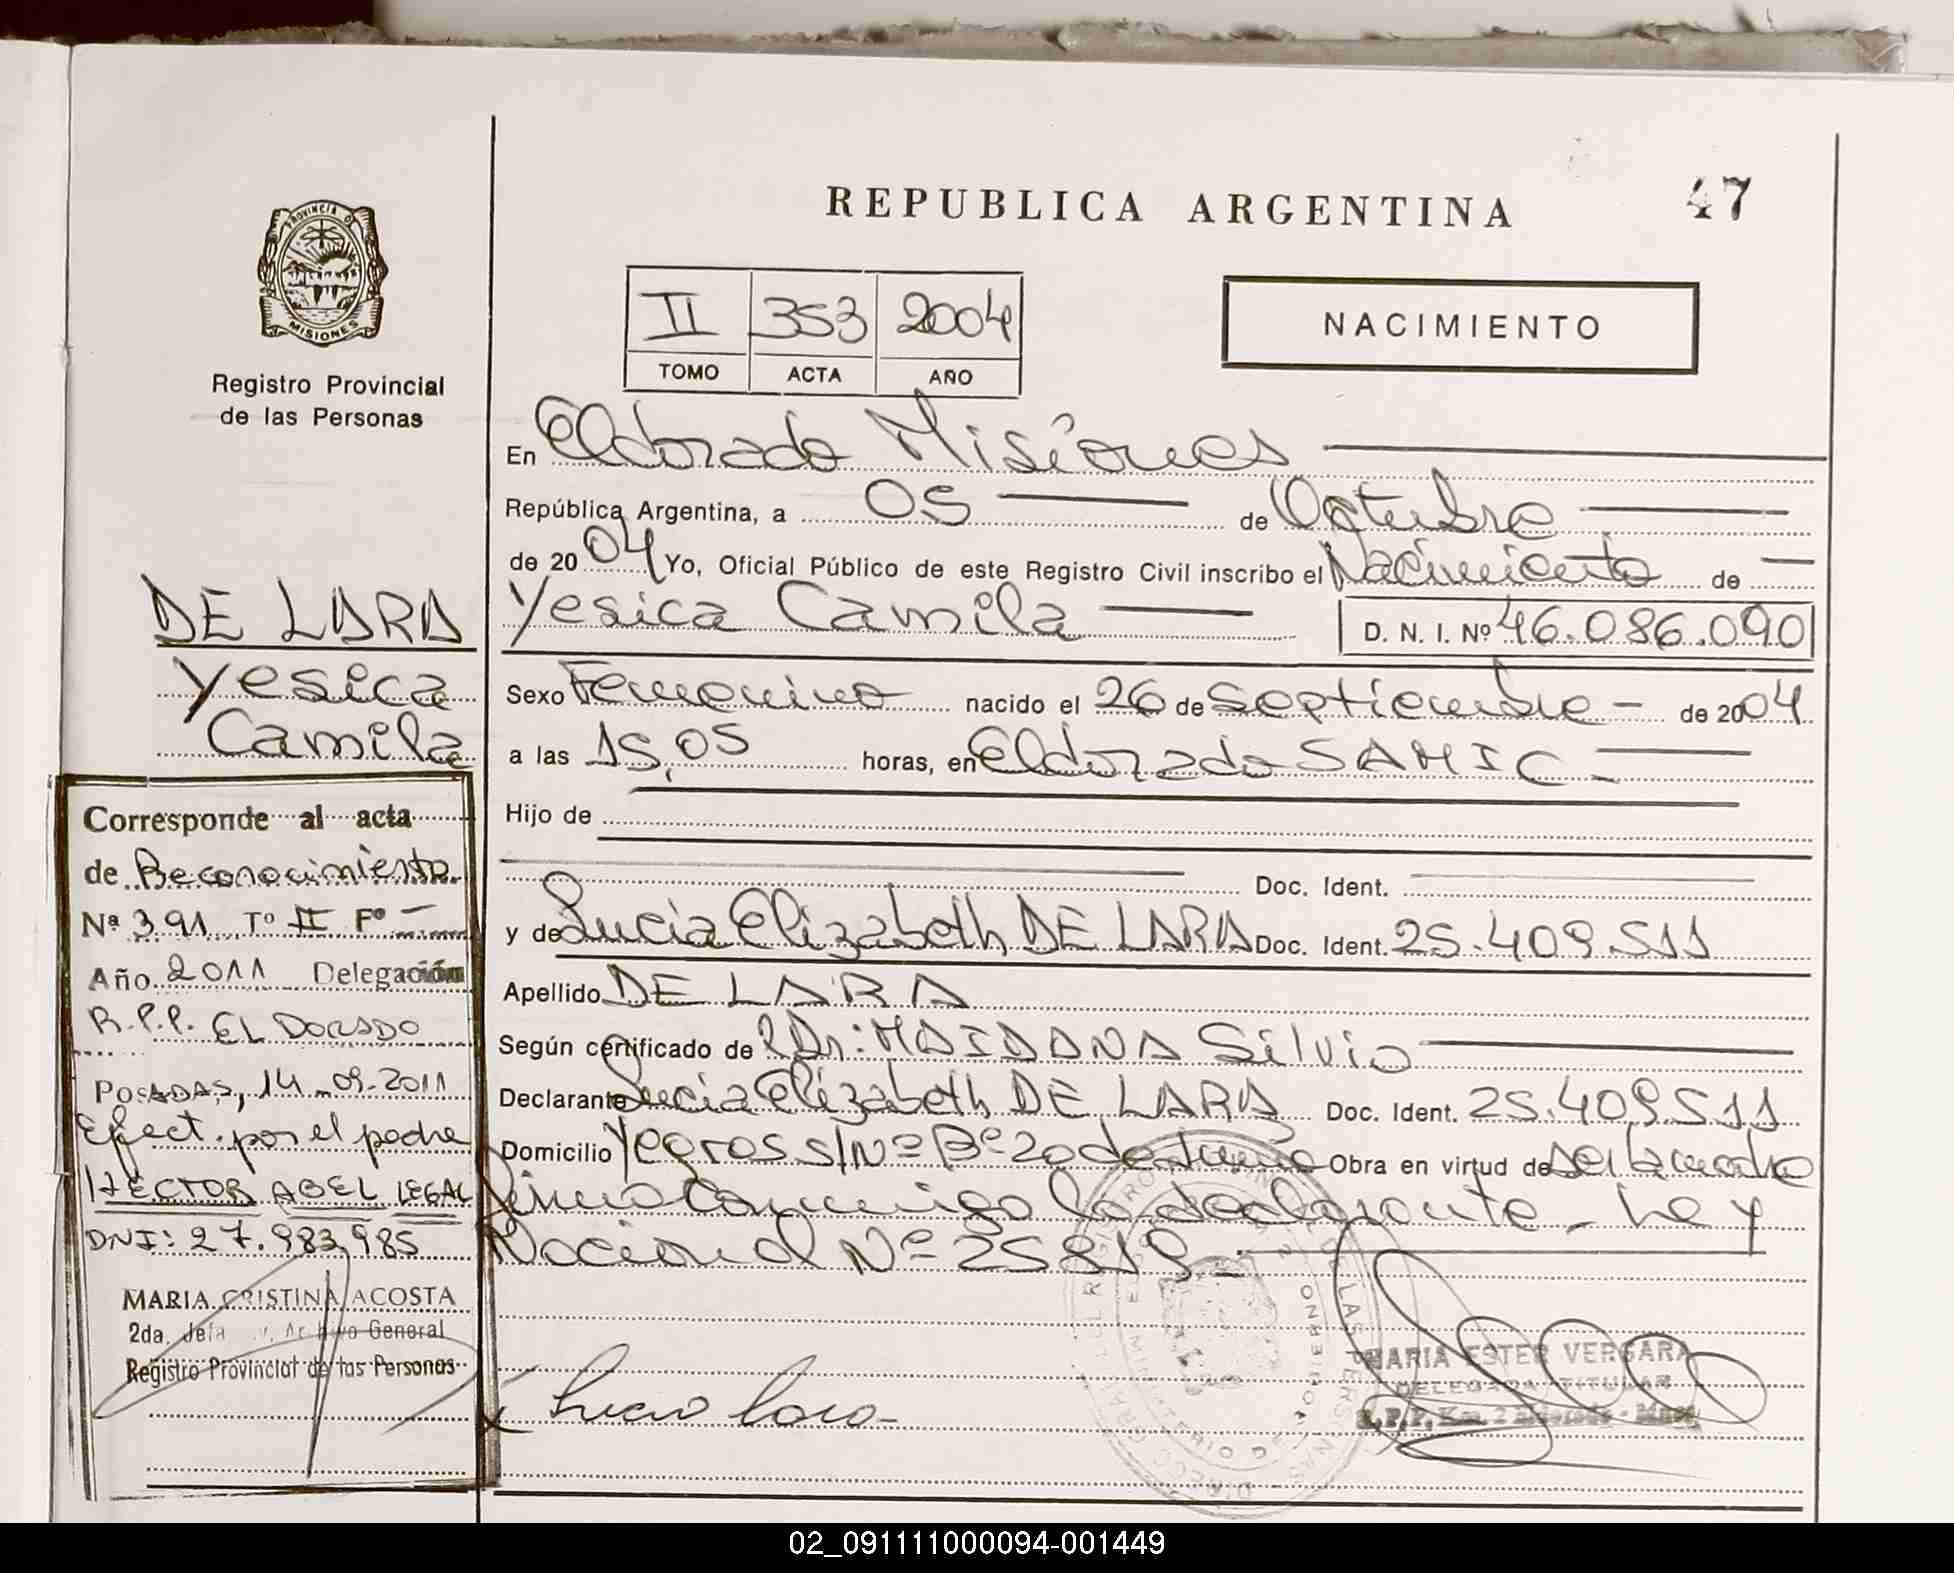 REPUBLICA ARGENTINA
47
PROVINCIA DE
MISIONES
Registro Provincial
de las Personas
II 353 2004
TOMO ACTA AÑO
NACIMIENTO
En Eldorado Misiones
República Argentina, a 05 de Octubre
de 2004 Yo, Oficial Público de este Registro Civil inscribo el Nacimiento de
Yesica Camila D. N. I. Nº 46.086.090
Sexo Femenino nacido el 26 de Septiembre de 2004
a las 15,05 horas, en Eldorado SAMIC
Hijo de
Doc. Ident.
y de Lucia Elizabeth DE LARA Doc. Ident. 25.409.511
Apellido DE LARA
Según certificado de Dr: MAIDANA Silvio
Declarante Lucia Elizabeth DE LARA Doc. Ident. 25.409.511
Domicilio Yegros s/Nº Bº 20 de Junio Obra en virtud de ser la madre
Firma conmigo la declarante - Ley
Nacional Nº 25819
Lucia Lara
MARIA ESTER VERGARA
DELEGADA TITULAR
R.P.P. Km. 2 Eldorado - Mnes
DE LARA
Yesica
Camila
Corresponde al acta
de Reconocimiento
Nº 391 Tº II Fº -
Año 2011 Delegación
R.P.P. ELDORADO
POSADAS, 14-09-2011
Efect. por el padre
HECTOR ABEL LEGAL
DNI: 27.983.985
MARIA CRISTINA ACOSTA
2da. Jefa Archivo General
Registro Provincial de las Personas
02_091111000094-001449